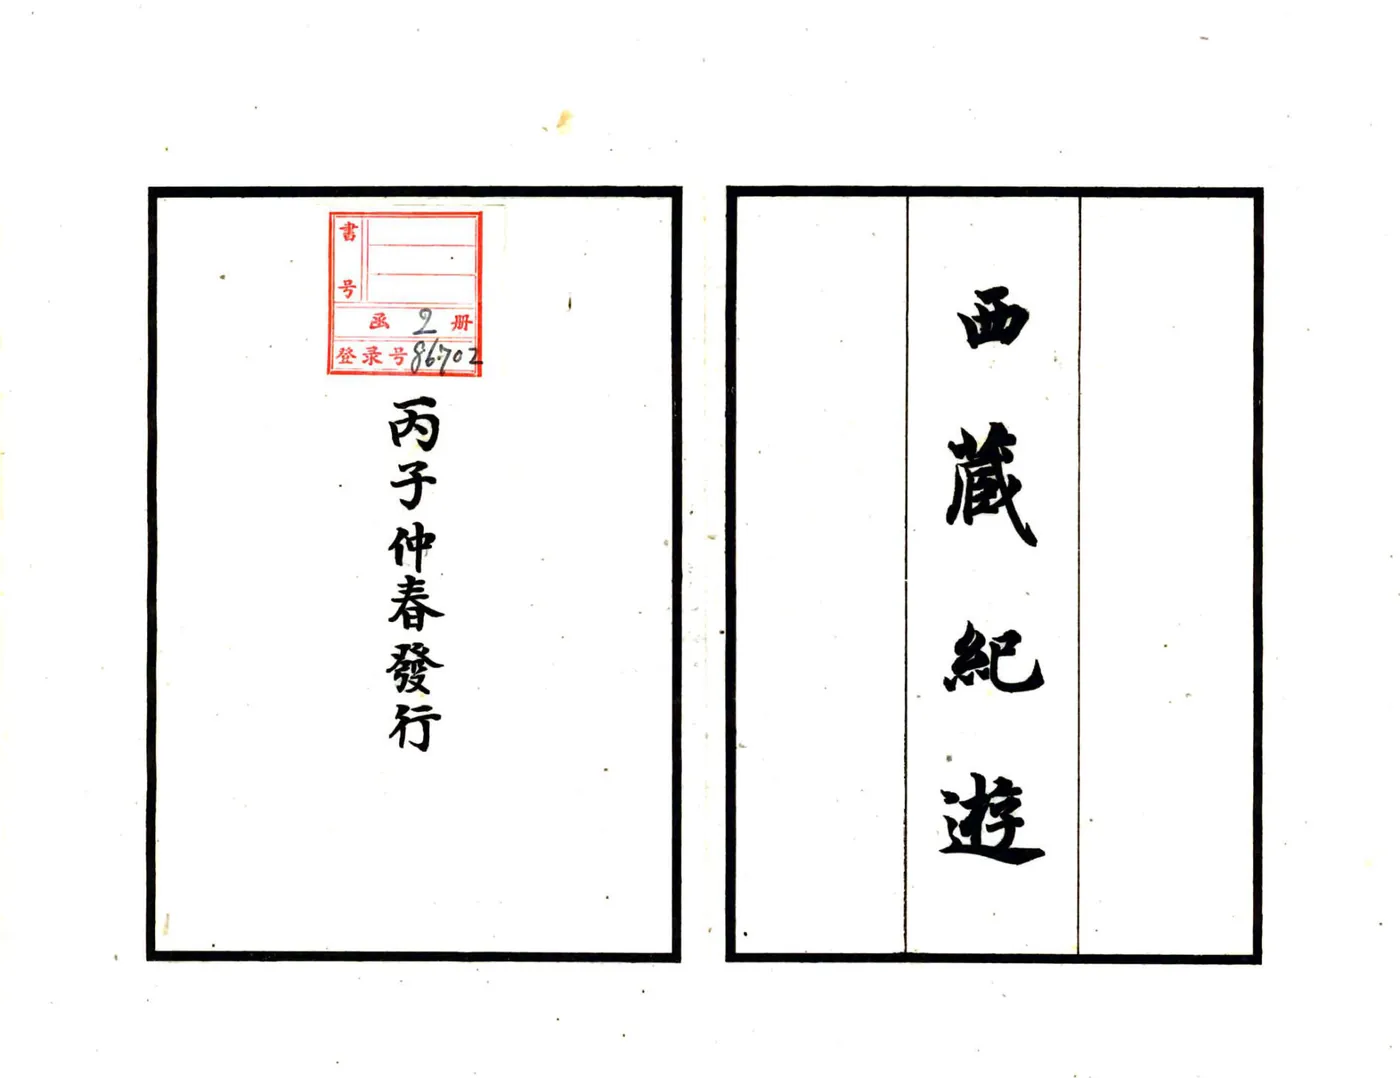 西藏紀遊
書号
函 2 册
登录号 86702
丙子仲春發行